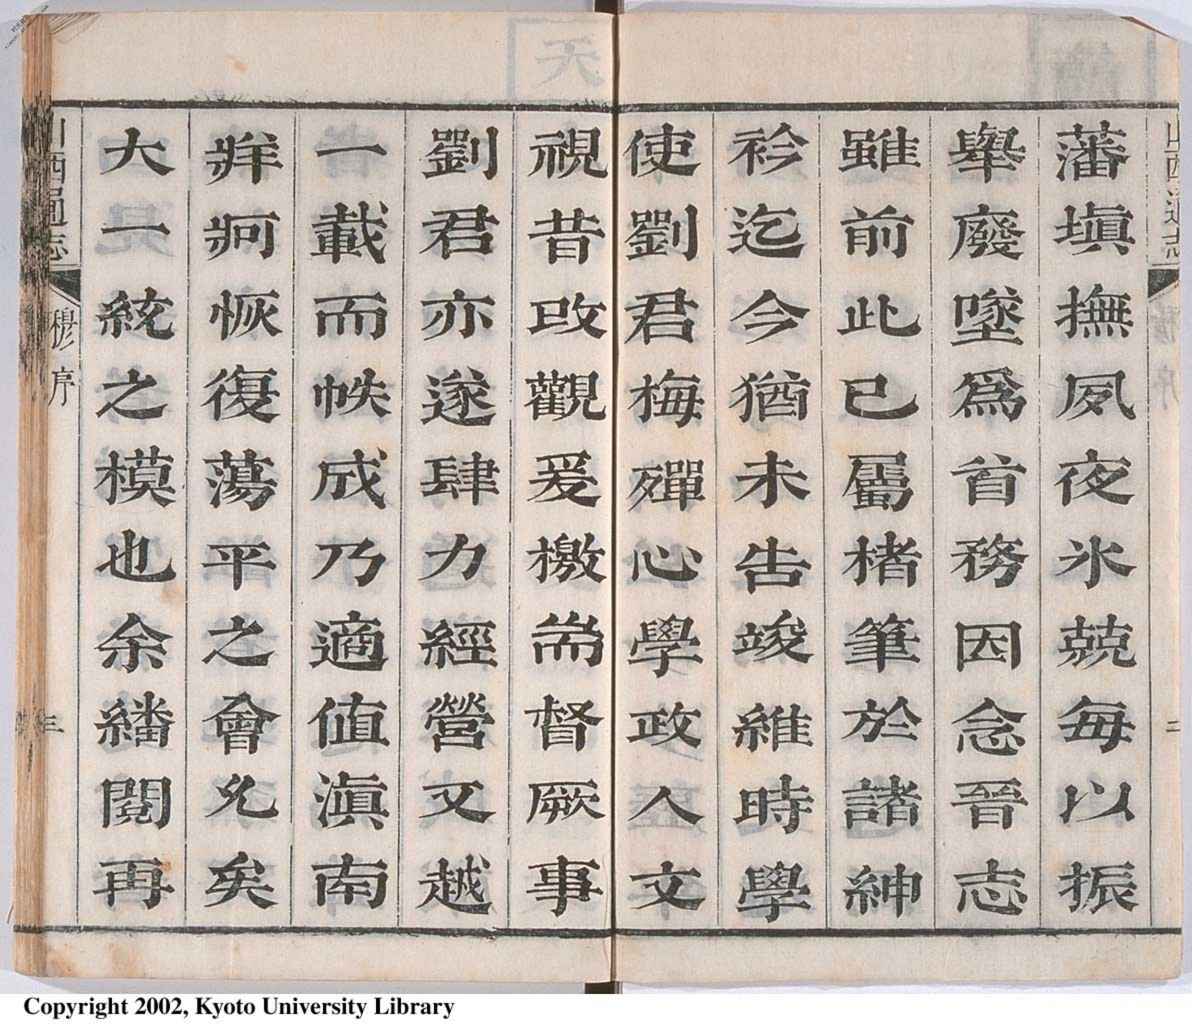 山西通志
二
藩塡撫夙夜氷兢每以振
舉廢墜爲首務因念晉志
雖前此已屬楮筆於諸紳
衿迄今猶未告竣維時學
使劉君梅殫心學政人文
視昔改觀爰檄耑督厥事
劉君亦遂肆力經營又越
一載而帙成乃適值滇南
牂牁恢復蕩平之會允矣
大一統之模也余繙閱再
山西通志
穆序
三
Copyright 2002, Kyoto University Library